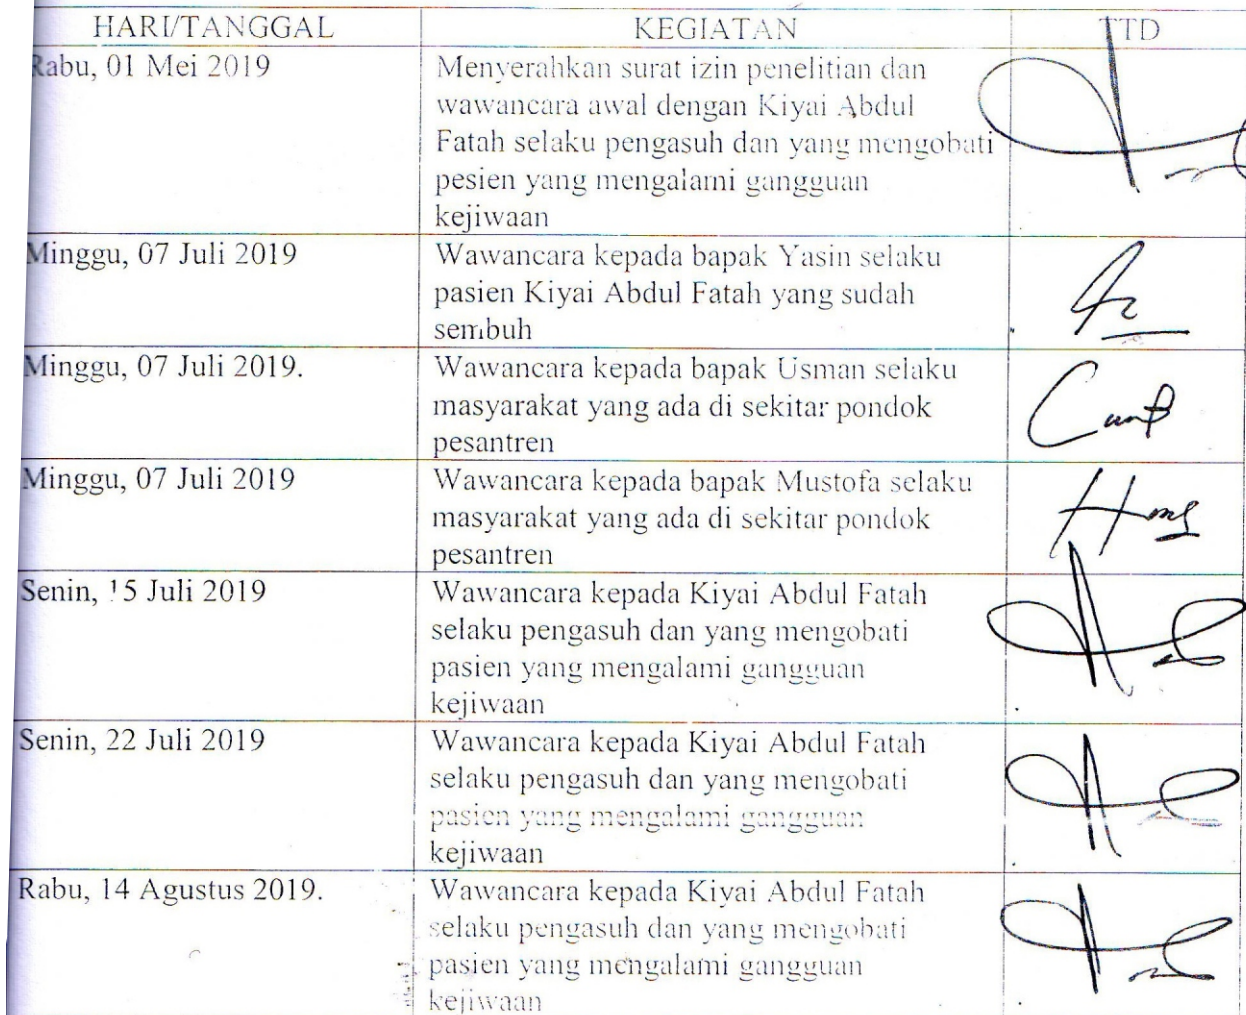 HARI/TANGGAL KEGIATAN TTD
Rabu, 01 Mei 2019 Menyerahkan surat izin penelitian dan
wawancara awal dengan Kiyai Abdul
Fatah selaku pengasuh dan yang mengobati
pesien yang mengalami gangguan
kejiwaan
Minggu, 07 Juli 2019 Wawancara kepada bapak Yasin selaku
pasien Kiyai Abdul Fatah yang sudah
sembuh
Minggu, 07 Juli 2019. Wawancara kepada bapak Usman selaku
masyarakat yang ada di sekitar pondok
pesantren
Minggu, 07 Juli 2019 Wawancara kepada bapak Mustofa selaku
masyarakat yang ada di sekitar pondok
pesantren
Senin, 15 Juli 2019 Wawancara kepada Kiyai Abdul Fatah
selaku pengasuh dan yang mengobati
pasien yang mengalami gangguan
kejiwaan
Senin, 22 Juli 2019 Wawancara kepada Kiyai Abdul Fatah
selaku pengasuh dan yang mengobati
pasien yang mengalami gangguan
kejiwaan
Rabu, 14 Agustus 2019. Wawancara kepada Kiyai Abdul Fatah
selaku pengasuh dan yang mengobati
pasien yang mengalami gangguan
kejiwaan